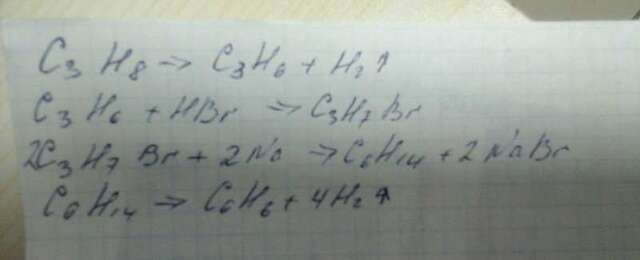 C₃H₈ → C₃H₆ + H₂↑
C₃H₆ + HBr → C₃H₇Br
2C₃H₇Br + 2Na → C₆H₁₄ + 2NaBr
C₆H₁₄ → C₆H₆ + 4H₂↑